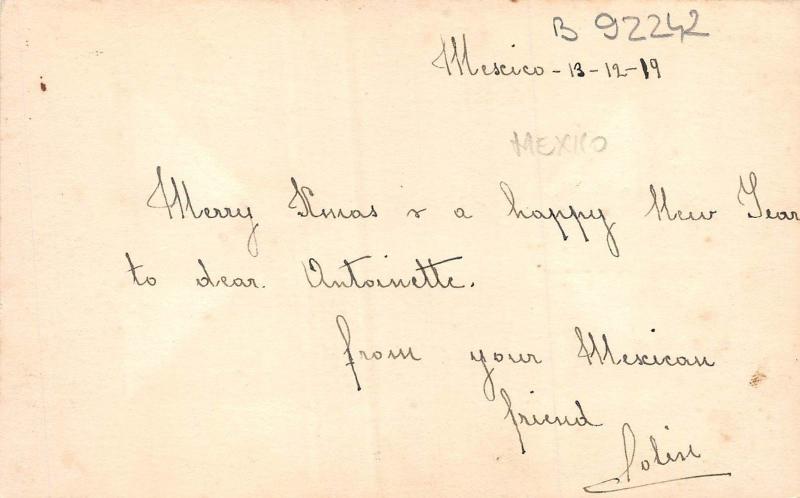 B 92242
Mexico - 13-12-19
MEXICO
Merry Xmas & a happy New Year
to dear. Antoinette.
from your Mexican
friend